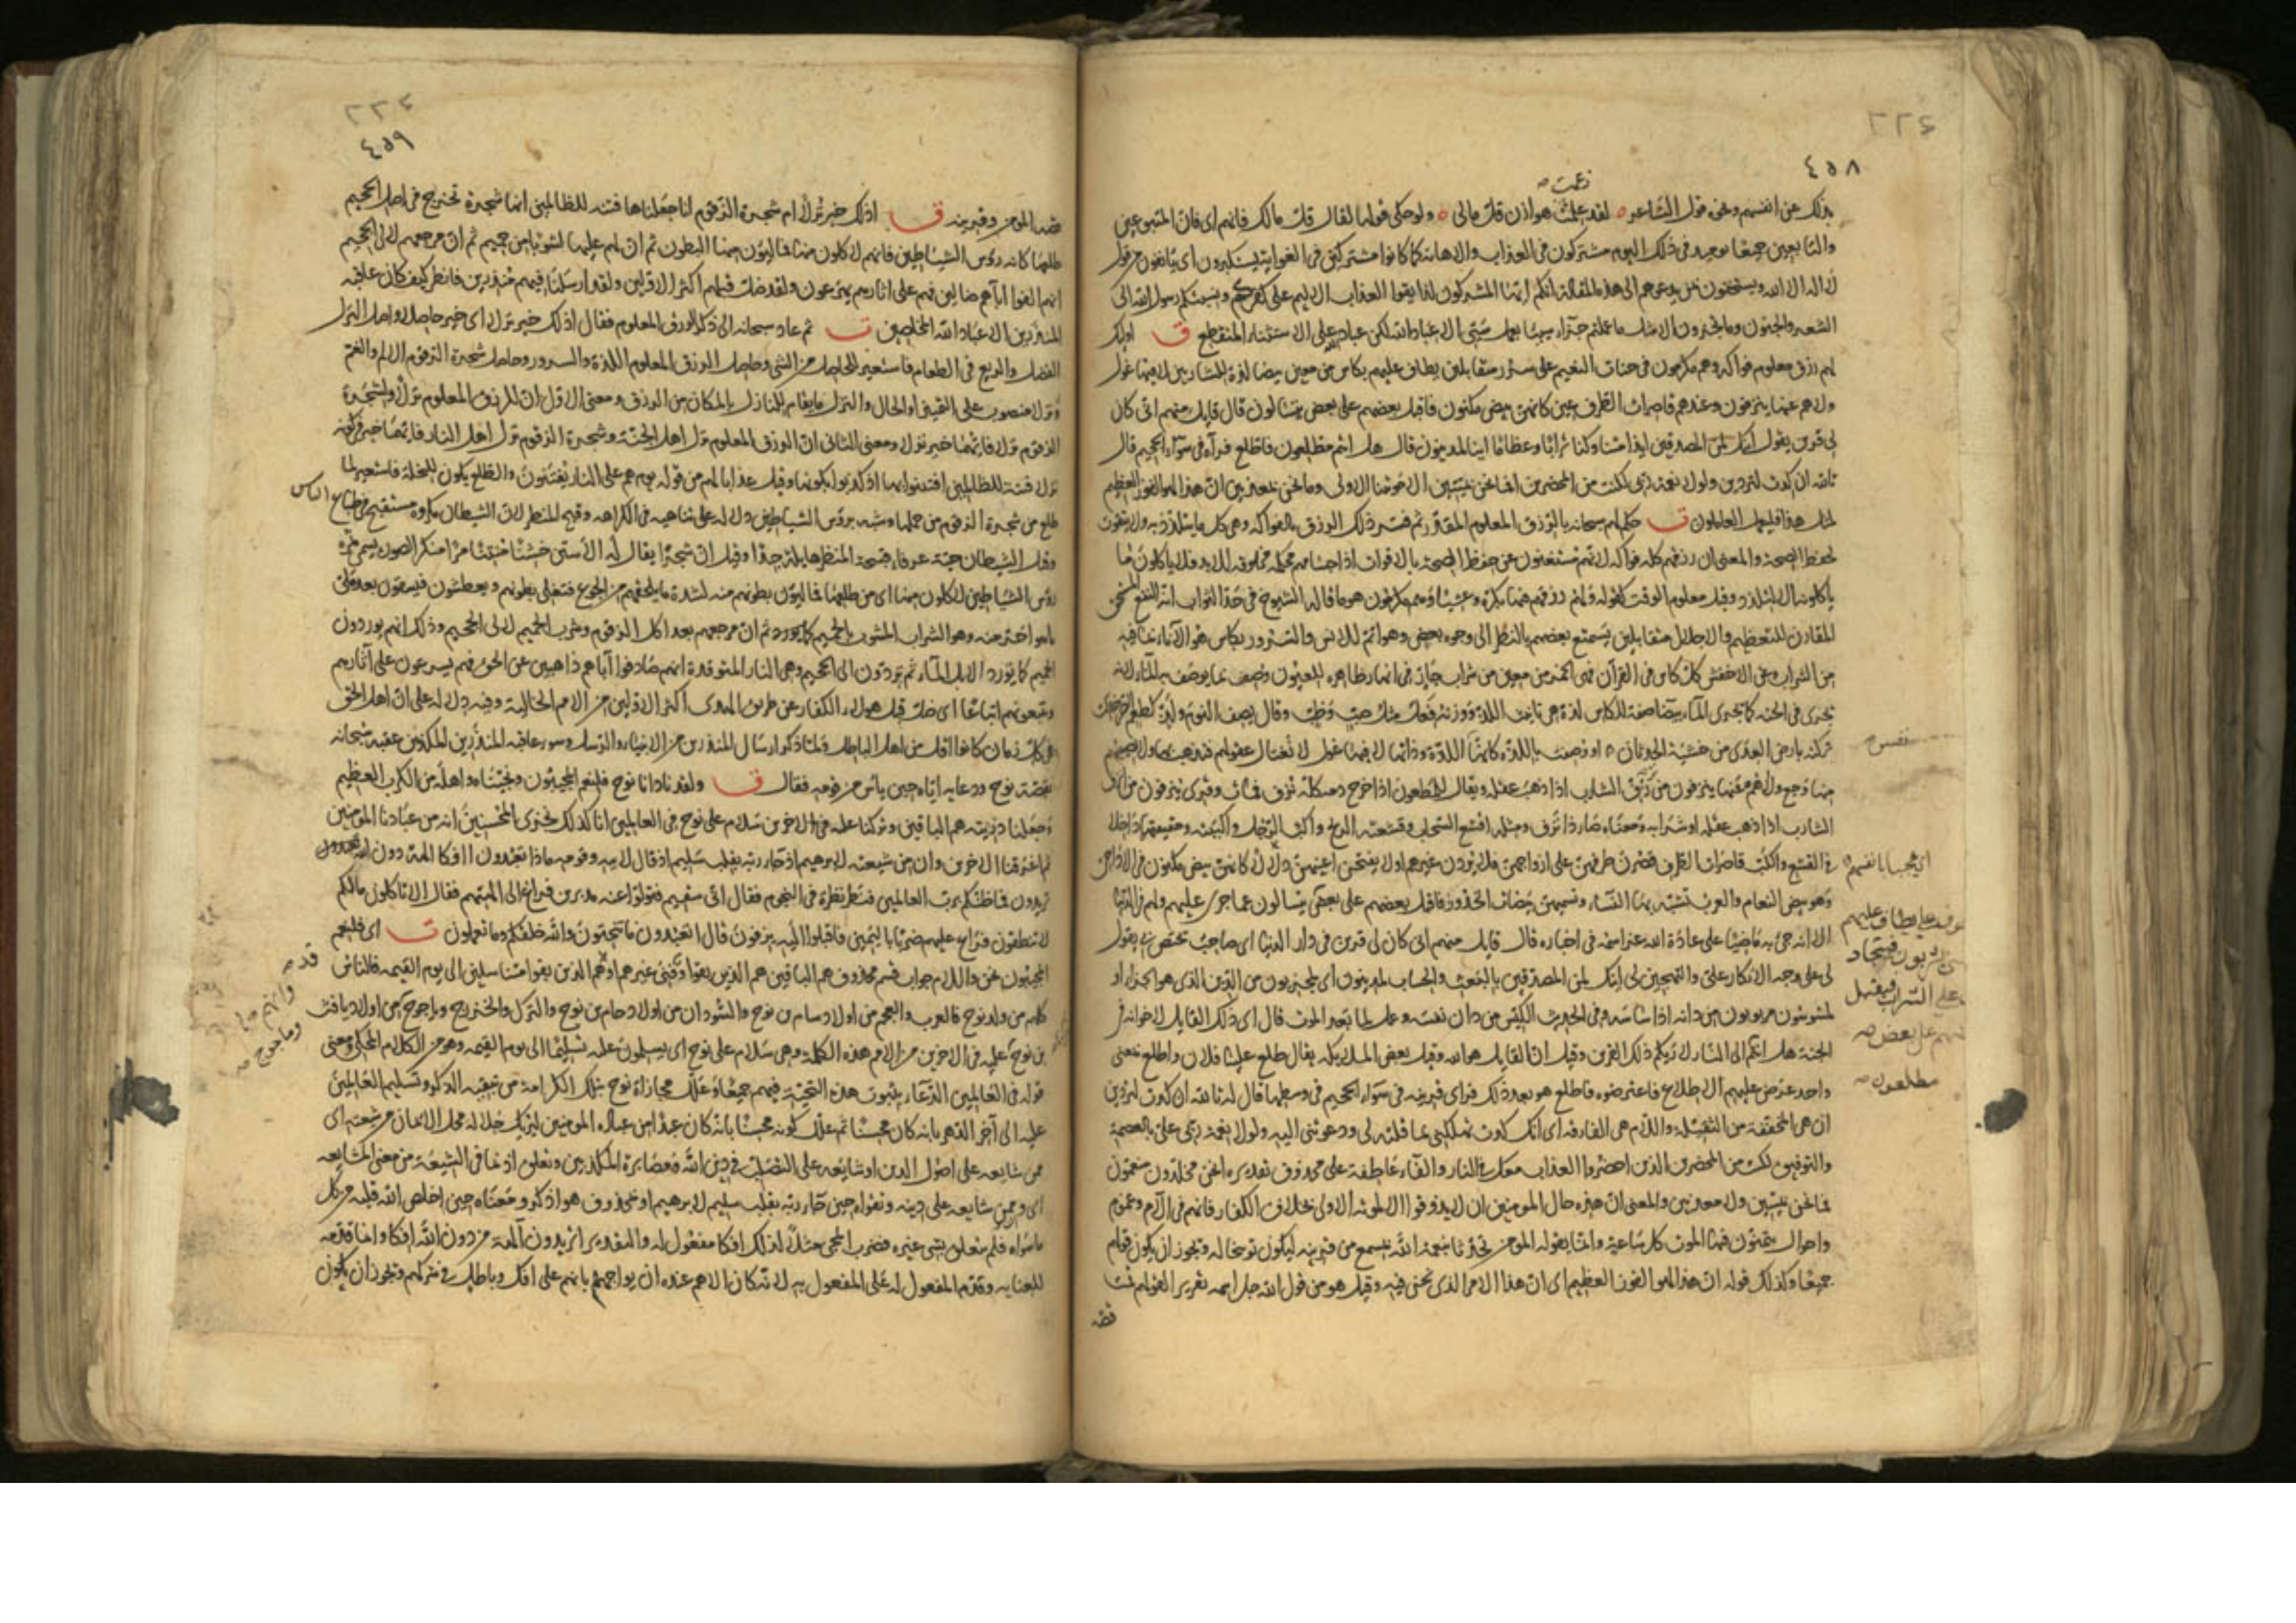 ٢٢٤
٤٥٨
زعمت صه
بذلك عن انفسهم ونحوه قول الشاعر لقد علمت هوازن قل مالى ولو حكى قولها لقال قل مالك فانهم اى فان المتبوعين
والتابعين جميعا يومئذ فى ذلك اليوم مشتركون فى العذاب والاهانة كما كانوا مشتركين فى الغواية يستكبرون اى يانفون من قول
لا اله الا الله ويستخفون بمن يدعوهم الى هذه المقالة انكم ايها المشركون لذايقوا العذاب الاليم على كفركم ونسبتكم رسول الله الى
الشعر والجنون وما تجزون الا مثل ما عملتم جزاء سيئا بعمل سيئ الا عباد الله لكن عباد الله على الاستثناء المنقطع ق اولئك
لهم رزق معلوم فواكه وهم مكرمون فى جنات النعيم على سرر متقابلين يطاف عليهم بكاس من معين بيضاء لذة للشاربين لا فيها غول
ولا هم عنها ينزفون وعندهم قاصرات الطرف عين كانهن بيض مكنون فاقبل بعضهم على بعض يتسالون قال قايل منهم انى كان
لى قرين يقول ائنك لمن المصدقين ايذا متنا وكنا ترابا وعظاما اينا لمدينون قال هل انتم مطلعون فاطلع فرآه فى سواء الجحيم قال
تالله ان كدت لتردين ولولا نعمة ربى لكنت من المحضرين افما نحن بميتين الا موتتنا الاولى وما نحن بمعذبين ان هذا لهو الفوز العظيم
لمثل هذا فليعمل العاملون ت حكم لهم سبحانه بالرزق المعلوم المقدر ثم فسر ذلك الرزق بالفواكه وهى كل ما يتلذذ به ولا يتقوت
لحفظ الصحة والمعنى ان رزقهم كله فواكه لانهم مستغنون عن حفظ الصحة بالاقوات اذ اجسامهم محكمة مخلوقة للابد فلا ياكلون ما
ياكلونه الا للتلذذ وقيل معلوم الوقت كقوله ولهم رزقهم فيها بكرة وعشيا وهم مكرمون هو ما قاله الشيوخ فى حد الثواب انه النفع المستحق
المقارن للتعظيم والاجلال متقابلين يستمتع بعضهم بالنظر الى وجوه بعض وهو اتم للانس والسرور بكاس هو الاناء بما فيه
من الشراب وعن الاخفش كل كاس فى القرآن فهى الخمر من معين من شراب جار فى انهار ظاهرة للعيون وصف بما يوصف به الماء لانه
يجرى فى الجنة كما يجرى الماء بيضاء صفة للكاس لذة هى تانيث اللذ ووزنه فعل مثل صب وطب وقال يصف النوم ولذ كطعم الصرخدى
تركته بارض العدى من خشية الحدثان او وصفت باللذة كانها اللذة وذاتها لا فيها غول لا تغتال عقولهم فتذهب بها ولا يصيبهم
منها وجع ولا هم عنها ينزفون من نزف الشارب اذا ذهب عقله ويقال للمطعون اذا خرج دمه كله نزف فمات وقرئ ينزفون من انزف
الشارب اذا ذهب عقله او شرابه ومعناه صار ذا نزف ومثله اقشع السحاب وقشعته الريح واكب الرجل وكببته وحقيقتهما دخلا
فى القشع والكب قاصرات الطرف قصرن طرفهن على ازواجهن فلا يردن غيرهم او لا يفتحن اعينهن دلالا كانهن بيض مكنون فى الاداحى
وهو بيض النعام والعرب تشبه بها النساء وتسميهن بيضات الخدور فاقبل بعضهم على بعض يتسالون عما جرى عليهم ولهم فى الدنيا
الا انه جئ به ماضيا على عادة الله عز اسمه فى اخباره قال قايل منهم انى كان لى قرين فى دار الدنيا اى صاحب يختص بى يقول
لى على وجه الانكار على والتهجين لى ائنك لمن المصدقين بالبعث والحساب لمدينون اى لمجزيون من الدين الذى هو الجزاء او
لمسوسون مربوبون من دانه اذا ساسه وفى الحديث الكيس من دان نفسه وعمل لما بعد الموت قال اى ذلك القايل لاخوانه فى
الجنة هل انتم الى النار لاريكم ذلك القرين وقيل ان القايل هو الله وقيل بعض الملائكة يقال طلع علينا فلان واطلع بمعنى
واحد عرض عليهم الاطلاع فاعترضوه فاطلع هو بعد ذلك فراى قرينه فى سواء الجحيم فى وسطها قال له تالله ان كدت لتردين
ان هى المخففة من الثقيلة واللام هى الفارقة اى انك كدت تهلكنى بما قلته لى ودعوتنى اليه ولولا نعمة ربى على بالعصمة
والتوفيق لكنت من المحضرين الذين احضروا العذاب معك فى النار والفاء عاطفة على محذوف تقديره انحن مخلدون منعمون
فما نحن بميتين ولا معذبين والمعنى ان هذه حال المومنين ان لا يذوقوا الا الموتة الاولى بخلاف الكفار فانهم فى آلام وغموم
واحوال يتمنون فيها الموت كل ساعة وانما يقوله المومن تحدثا بنعمة الله بمسمع من قرينه ليكون توبيخا له ويجوز ان يكون قولهم
جميعا وكذلك قوله ان هذا لهو الفوز العظيم اى ان هذا الامر الذى نحن فيه وقيل هو من قول الله جل اسمه تقريرا لقولهم تمت
قصة
نفس صه
اى عجبا بانفسهم
يطاف عليهم
على الشراب
على بعض صه
مطلعون صه
٢٢٤
٤٥٩
قصة المومن وقرينه ق اذلك خير نزلا ام شجرة الزقوم انا جعلناها فتنة للظالمين انها شجرة تخرج فى اصل الجحيم
طلعها كانه رؤس الشياطين فانهم لاكلون منها فمالئون منها البطون ثم ان لهم عليها لشوبا من حميم ثم ان مرجعهم لالى الجحيم
انهم الفوا اباءهم ضالين فهم على اثارهم يهرعون ولقد ضل قبلهم اكثر الاولين ولقد ارسلنا فيهم منذرين فانظر كيف كان عاقبة
المنذرين الا عباد الله المخلصين ت ثم عاد سبحانه الى ذكر الرزق المعلوم فقال اذلك خير نزلا اى خير حاصلا واصل النزل
الفضل والريع فى الطعام فاستعير للحاصل من الشئ وحاصل الرزق المعلوم اللذة والسرور وحاصل شجرة الزقوم الالم والغم
ونزلا منصوب على التميز او الحال والنزل ما يقام للنازل بالمكان من الرزق ومعنى الاول ان للرزق المعلوم نزلا ولشجرة
الزقوم نزلا فايهما خير نزلا ومعنى الثانى ان الرزق المعلوم نزل اهل الجنة وشجرة الزقوم نزل اهل النار فايهما خير فى كونه
نزلا فتنة للظالمين افتتنوا بها اذ كذبوا بكونها وقيل عذابا لهم من قوله يوم هم على النار يفتنون والطلع يكون للنخلة فاستعير لما
طلع من شجرة الزقوم من حملها وشبه برؤس الشياطين دلالة على تناهيه فى الكراهة وقبح المنظر لان الشيطان مكروه مستقبح فى طباع الناس
وقيل الشيطان حية عرفاء قبيحة المنظر هايلة جدا وقيل ان شجرا يقال له الاستن خشنا منتنا مرا منكر الصورة يسمى ثمره
رؤس الشياطين لاكلون منها اى من طلعها فمالئون بطونهم منه لشدة ما يلحقهم من الجوع فتغلى بطونهم ويعطشون فيسقون بعد ملئ
ما هو احر منه وهو الشراب المشوب بالحميم ثم ان مرجعهم بعد اكل الزقوم وشرب الحميم لالى الجحيم وذلك انهم يوردون
الحميم كما يورد الابل الماء ثم يردون الى الجحيم وهى النار المتوقدة انهم صادفوا آباءهم ذاهبين عن الحق فهم يسرعون على آثارهم
ويتبعونهم اتباعا اى ضل قبل هولاء الكفار عن طريق الهدى اكثر الاولين من الامم الخالية وفيه دلالة على ان اهل الحق
فى كل زمان كانوا اقل من اهل الباطل ولما ذكر ارسال المنذرين من الانبياء والرسل وسوء عاقبة المنذرين المكذبين عقبه سبحانه
بقصة نوح ودعايه اياه حين يئس من قومه فقال ق ولقد نادانا نوح فلنعم المجيبون ونجيناه واهله من الكرب العظيم
وجعلنا ذريته هم الباقين وتركنا عليه فى الاخرين سلام على نوح فى العالمين انا كذلك نجزى المحسنين انه من عبادنا المومنين
ثم اغرقنا الاخرين وان من شيعته لابرهيم اذ جاء ربه بقلب سليم اذ قال لابيه وقومه ماذا تعبدون اافكا الهة دون الله
تريدون فما ظنكم برب العالمين فنظر نظرة فى النجوم فقال انى سقيم فتولوا عنه مدبرين فراغ الى الهتهم فقال الا تاكلون مالكم
لا تنطقون فراغ عليهم ضربا باليمين فاقبلوا اليه يزفون قال اتعبدون ما تنحتون والله خلقكم وما تعملون ت اى فلنعم
المجيبون نحن واللام جواب قسم محذوف هم الباقين هم الذين بقوا وفنى غيرهم او هم الذين بقوا متناسلين الى يوم القيمة فالناس
كلهم من ولد نوح فالعرب والعجم من اولاد سام بن نوح والسودان من اولاد حام بن نوح والترك والخزر وياجوج من اولاد يافث
بن نوح عليه فى الاخرين من الامم هذه الكلمة وهى سلام على نوح اى يسلمون عليه تسليما الى يوم القيمة وهو من الكلام المحكى ومعنى
قوله فى العالمين الدعاء بثبوت هذه التحية فيهم جميعا وعلل مجازاة نوح بتلك الكرامة من تبقية الذكر وتسليم العالمين
عليه الى آخر الدهر بانه كان محسنا ثم علل كونه محسنا بانه كان عبدا من عباده المومنين ليريك جلالة محل الايمان من شيعته اى
ممن شايعه على اصول الدين او شايعه على التصلب فى دين الله ومصابرة المكذبين وتعلق اذ بما فى الشيعة من معنى المشايعة
اى وممن شايعه على دينه وتقواه حين جاء ربه بقلب سليم لابرهيم او بمحذوف هو اذكر ومعناه حين اخلص الله قلبه من كل
ما سواه فلم يتعلق بشئ غيره فضرب المجئ مثلا لذلك افكا مفعول له والتقدير اتريدون آلهة من دون الله افكا وانما قدمه
للعناية وقدم المفعول له على المفعول به لانه كان الاهم عنده ان يواجههم بانهم على افك وباطل فى شركهم ويجوز ان يكون
قد صه
وماجوج صه